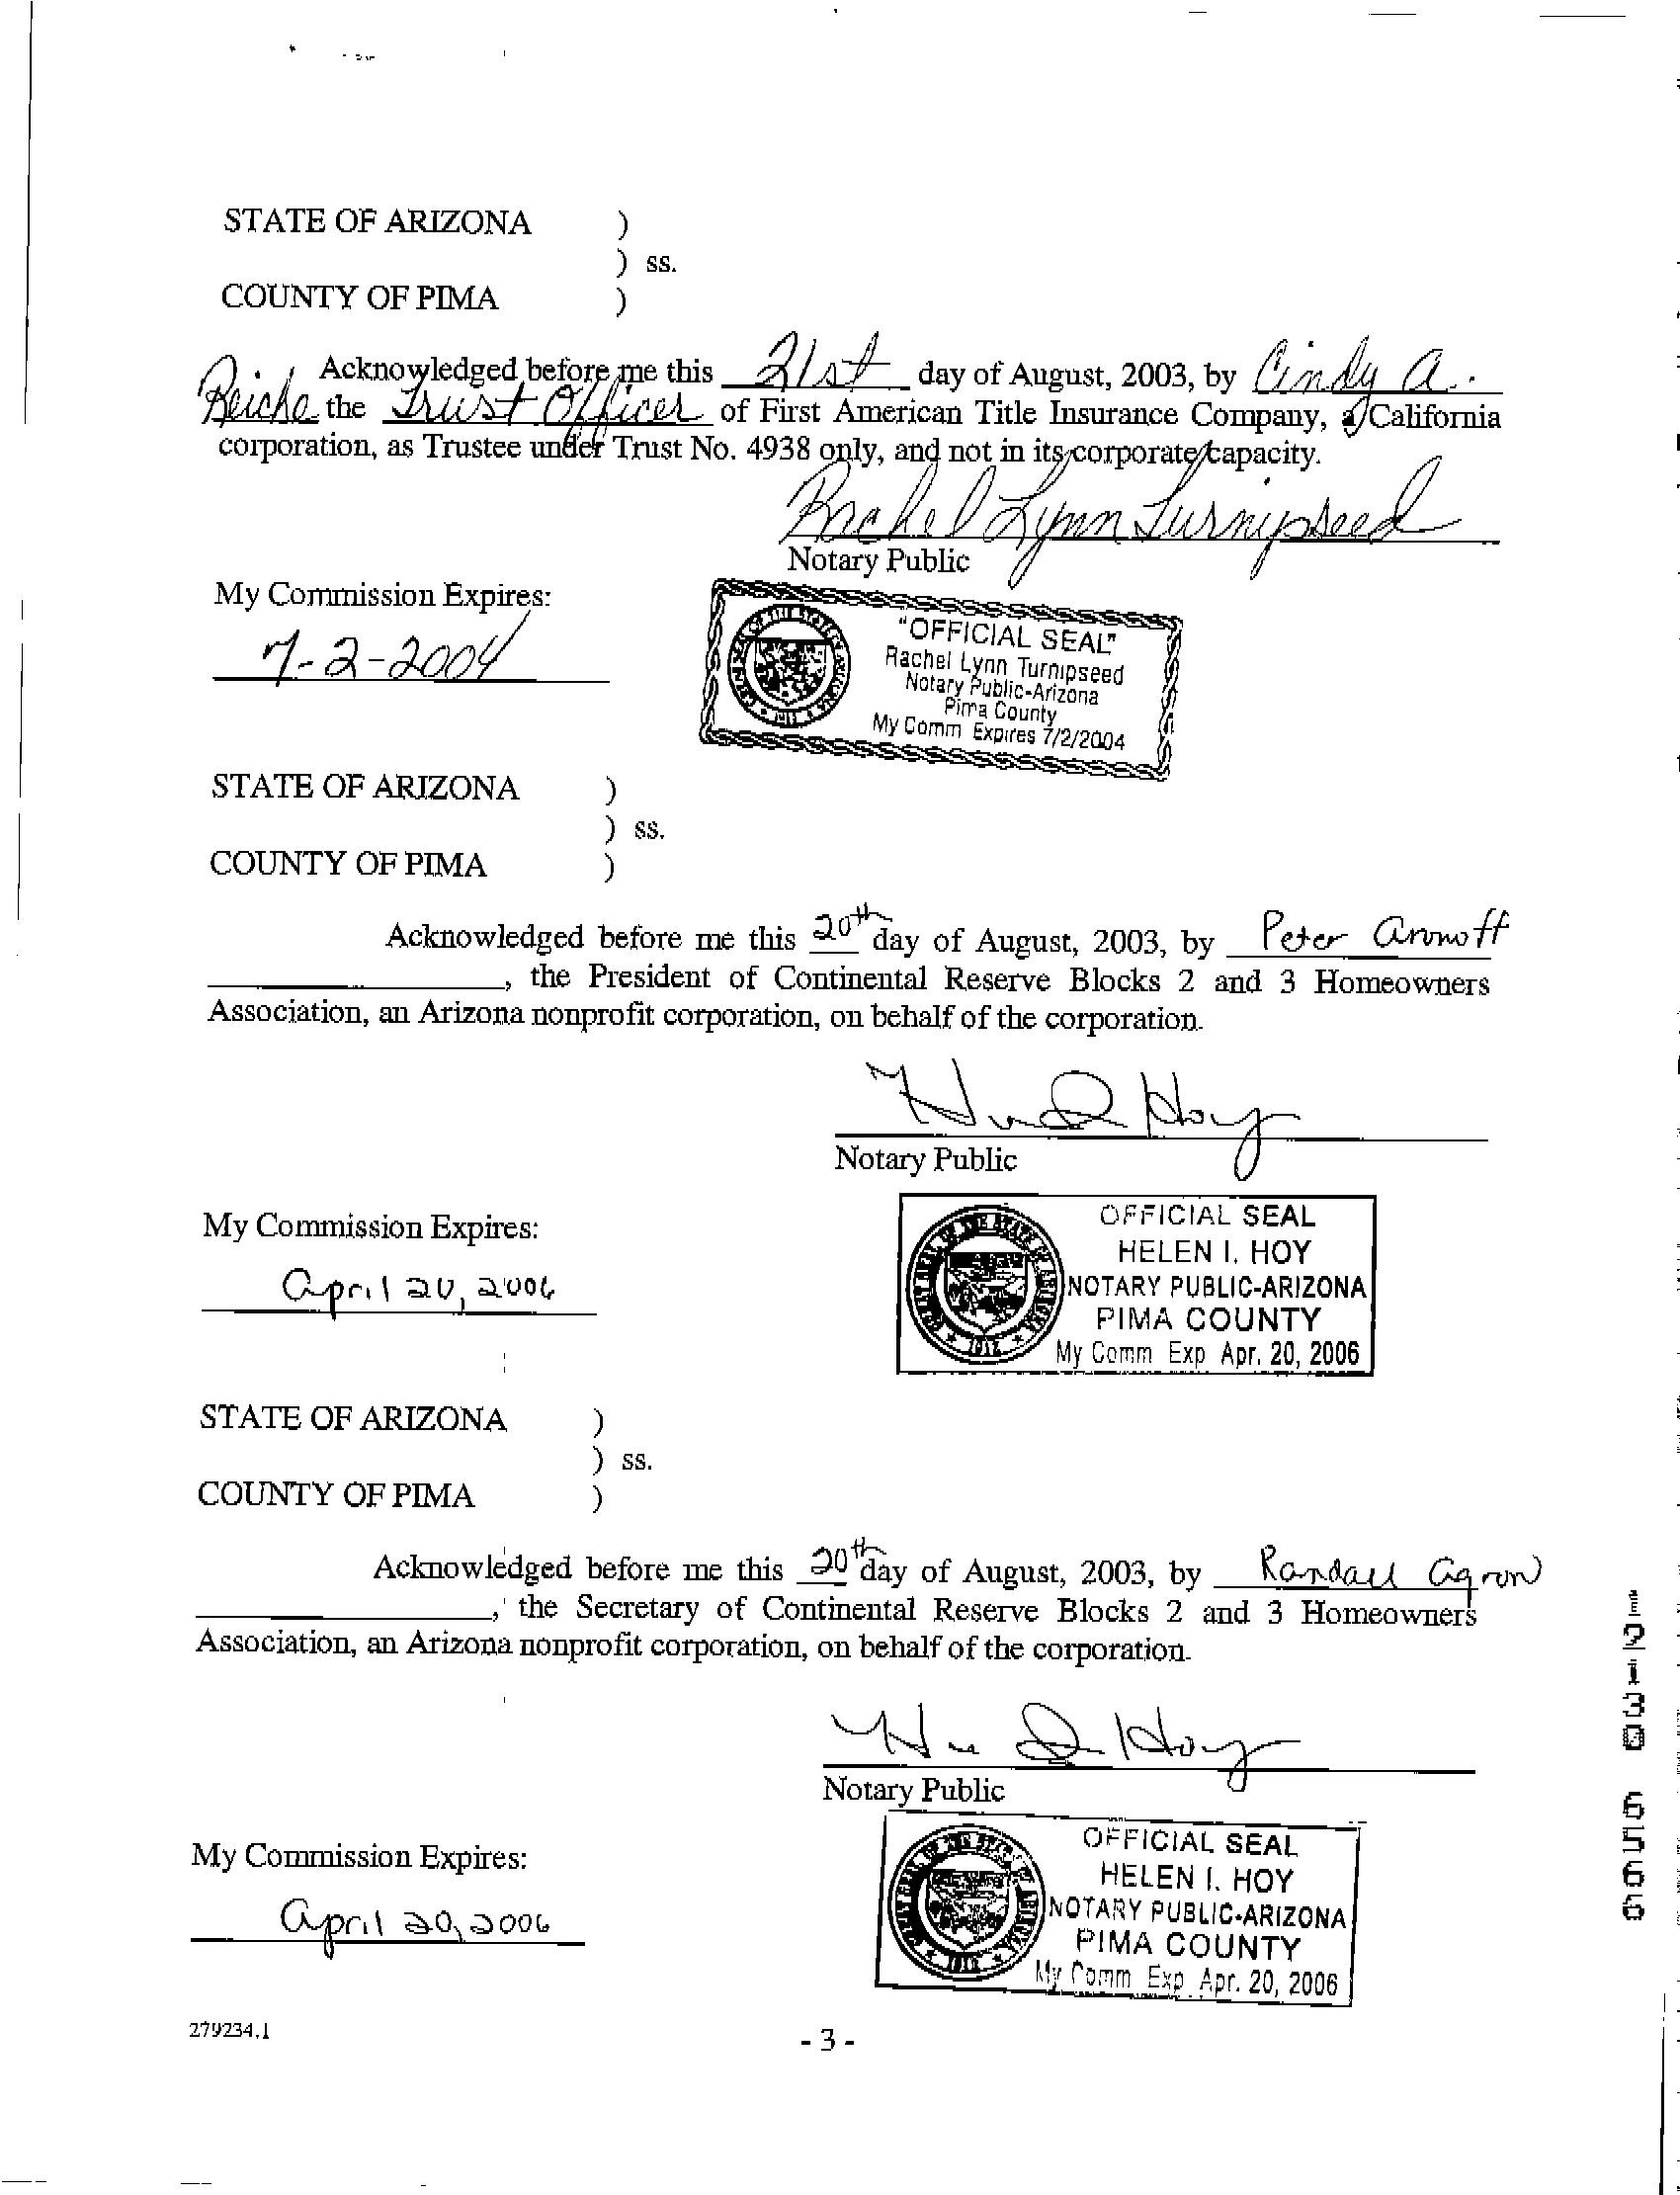 STATE OF ARIZONA )
) ss.
COUNTY OF PIMA )
Acknowledged before me this 21st day of August, 2003, by Cindy A.
Reiche the Trust Officer of First American Title Insurance Company, a California
corporation, as Trustee under Trust No. 4938 only, and not in its corporate capacity.
Rachel Lynn Turnipseed
Notary Public
My Commission Expires:
7-2-2004
"OFFICIAL SEAL"
Rachel Lynn Turnipseed
Notary Public-Arizona
Pima County
My Comm Expires 7/2/2004
STATE OF ARIZONA )
) ss.
COUNTY OF PIMA )
Acknowledged before me this 20th day of August, 2003, by Peter Aronoff
, the President of Continental Reserve Blocks 2 and 3 Homeowners
Association, an Arizona nonprofit corporation, on behalf of the corporation.
Notary Public
My Commission Expires:
April 20, 2006
OFFICIAL SEAL
HELEN I. HOY
NOTARY PUBLIC-ARIZONA
PIMA COUNTY
My Comm Exp Apr. 20, 2006
STATE OF ARIZONA )
) ss.
COUNTY OF PIMA )
Acknowledged before me this 20th day of August, 2003, by Randall Agron
, the Secretary of Continental Reserve Blocks 2 and 3 Homeowners
Association, an Arizona nonprofit corporation, on behalf of the corporation.
Notary Public
My Commission Expires:
April 20, 2006
OFFICIAL SEAL
HELEN I. HOY
NOTARY PUBLIC-ARIZONA
PIMA COUNTY
My Comm Exp Apr. 20, 2006
279234.1
- 3 -